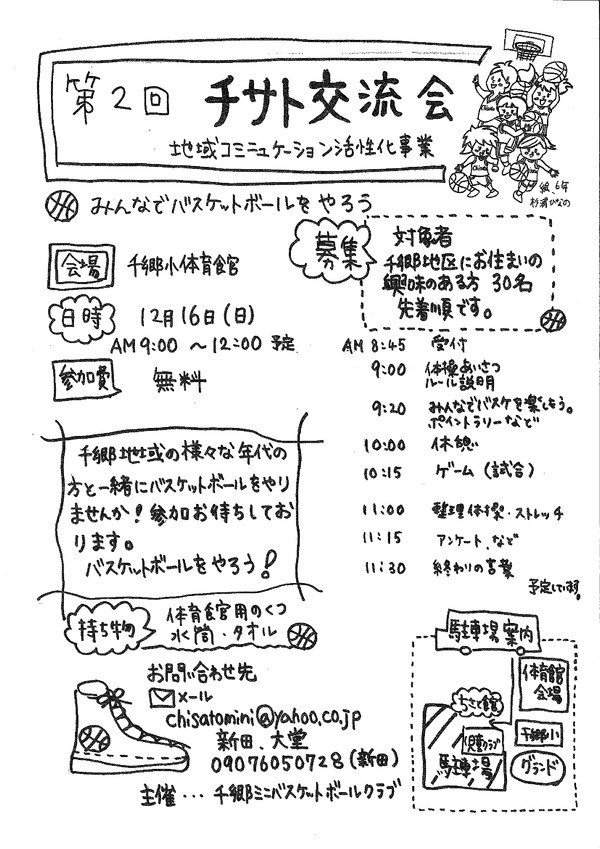 第2回 チサト交流会
地域コミニュケーション活性化事業
絵、6年
みんなでバスケットボールをやろう
会場 千郷小体育館
日時 12月16日(日)
AM 9:00 〜12:00 予定
参加費 無料
募集
対象者
千郷地区にお住まいの
興味のある方 30名
先着順です。
AM 8:45 受付
9:00 体操あいさつ
ルール説明
9:20 みんなでバスケを楽しもう。
ポイントラリーなど
10:00 休憩
10:15 ゲーム(試合)
11:00 整理体操・ストレッチ
11:15 アンケート、など
11:30 終わりの言葉
予定しています。
千郷地域の様々な年代の
方と一緒にバスケットボールをやり
ませんか!参加お待ちしてお
ります。
バスケットボールをやろう!
持ち物
体育館用のくつ
水筒・タオル
お問い合わせ先
メール
chisatomini@yahoo.co.jp
新田、大堂
09076050728(新田)
主催・・・千郷ミニバスケットボールクラブ
駐車場案内
体育館
会場
ちさと館
千郷小
児童クラブ
駐車場
グランド